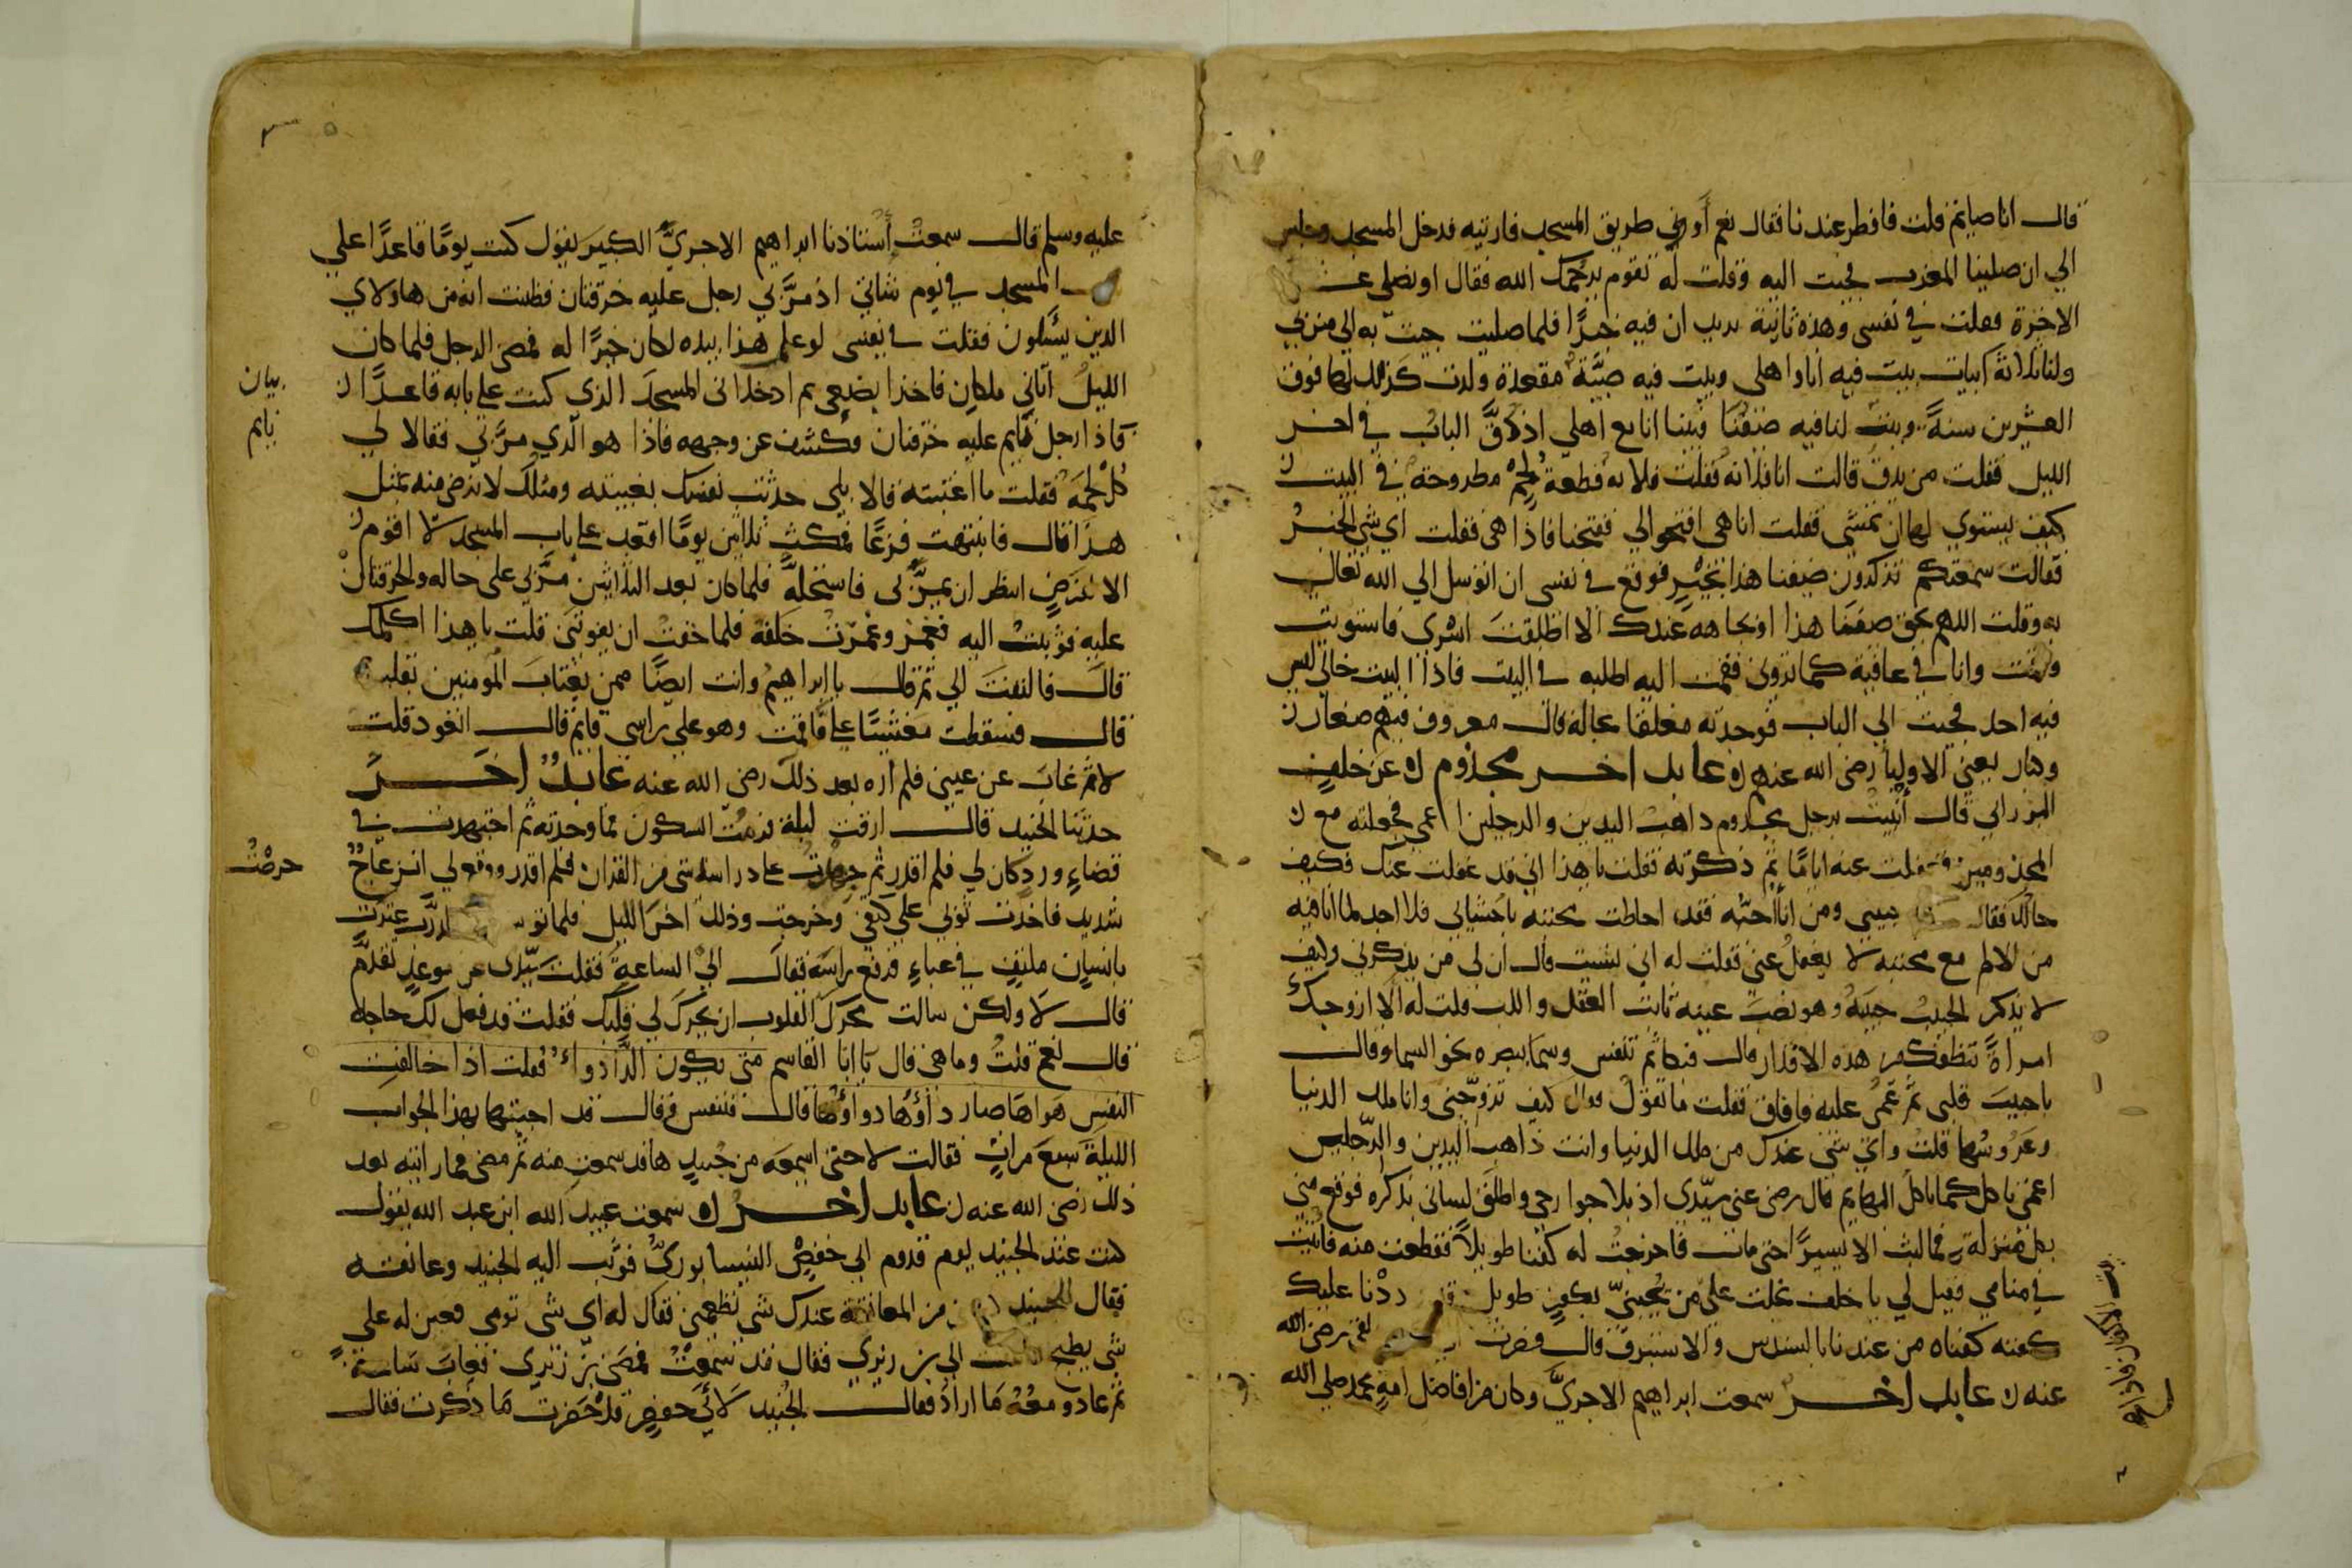 قال انا صايم قلت فافطر عندنا فقال نعم أو في طريق المسجد فارتيه فدخل المسجد وجلس
الي ان صلينا المغرب فجيت اليه وقلت له تقوم يرحمك الله فقال او نصلي
الاخرة فقلت في نفسي وهذه ثانية يريد ان فيه خيرًا فلما صليت جيت به الي منزلي
ولنا ثلاثة ابيات بيت فيه انا واهلي وبيت فيه صبيّة مقعدة ولدت كذلك لها فوق
العشرين سنةً وبيت لنا فيه ضيفنا فبينا انا مع اهلي اذ دقّ الباب في اخر
الليل فقلت من يدق قالت انا فلانه فقلت فلانه قطعة لحم مطروحة في البيت
كيف يستوي لها ان تمشي فقلت انا هي افتحوا لي ففتحنا فاذا هي فقلت اي شي الخبر
فقالت سمعتكم تذكرون ضيفنا هذا بخيرٍ فوقع في نفسي ان اتوسل الي الله تعالى
به وقلت اللهم بحق ضيفنا هذا وبجاهه عندك الا اطلقت اسري فاستويت
وقمت وانا في عافية كما تروني فقمت اليه اطلبه في البيت فاذا البيت خالي ليس
فيه احد فجيت الي الباب فوجدته مغلقا بحاله قال معروف فيهم صغار
وكبار يعني الاوليا رضي الله عنهم عابد اخر مجذوم عن خلف
البزراني قال أتيت برجل مجذوم ذاهب اليدين والرجلين اعمي فجعلته مع
المجذومين فغفلت عنه ايامًا ثم ذكرته فقلت يا هذا اني قد غفلت عنك فكيف
حالك فقال حبيبي ومن انا احبّه فقد احاطت محبته باحشائي فلا اجد لما انا فيه
من الالم مع محبته لا يغفل عني فقلت له اني نسيت قال ان لي من يذكرني وكيف
لا يذكر الحبيب حبيبه وهو نصب عينه ثابت العقل واللب قلت له ألا ازوجك
امراةً تنظفك من هذه الاقذار قال فبكا ثم تنفس وسما ببصره نحو السما وقال
يا حبيب قلبي ثم غمي عليه فافاق فقلت ما تقول قال كيف تزوّجني وانا ملك الدنيا
وعروسُها قلت واي شي عندك من ملك الدنيا وانت ذاهب اليدين والرّجلين
اعمي تاكل كما تاكل البهايم قال رضي عني سيّدي اذ بلا جوارحي واطلق لساني بذكره فوقع مني
بكل منزلة فما لبث الا يسيرًا حتى مات فاخرجت له كفنا طويلاً فقطعت منه فاتيت
في منامي فقيل لي يا خلف بخلت علي من يحبّني بكفن طويل قد رددْنا عليك
كفنه كفناه من عندنا بالسندس والاستبرق قال فصرت رضي الله
عنه عابد اخر سمعت ابراهيم الاجريّ وكان من افاضل امة محمد صلي الله
عليه وسلم قال سمعتُ أستاذنا ابراهيم الاجريَّ الكبيرَ يقول كنت يومًا قاعدًا علي
المسجد في يوم شاتي اذ مرَّ بي رجل عليه خرقتان فظننت انه من هاولاي
الذين يسئلون فقلت في نفسي لو عمل هذا بيده لكان خيرًا له فمضي الرجل فلما كان
الليلُ اتاني ملكان فاخذا بضبعي ثم ادخلاني المسجدَ الذي كنت علي بابه قاعدًا
فاذا رجل نايم عليه خرقتان فكشف عن وجهه فاذا هو الّذي مرَّ بي فقالا لي
كُل لحمَهُ فقلت ما اغتبته قالا بلي حدثت نفسك بغيبته ومثلك لا يُرضي منه بمثل
هذا قال فانتبهت فزعًا فمكثت ثلاثين يومًا اقعد علي باب المسجد لا اقوم
الا لفرضٍ انتظر ان يمرَّ بي فاستحلّه فلما كان بعد الثلاثين مرَّ بي علي حاله والخرقتان
عليه فوثبتُ اليه فغمز وغمزت خلفه فلما خفت ان يفوتني قلت يا هذا اكلمك
قال فالتفت الي ثم قال يا ابراهيم وانت ايضًا ممن يغتاب المؤمنين بقلبه
قال فسقطت مغشيًا علي فافقت وهو علي راسي قايم قال اتعود قلت
لا ثم غاب عن عيني فلم اره بعد ذلك رضي الله عنه عابدٌ اخرُ
حدّثنا الجنيد قال ارقت ليلة فرمت السكون فما وجدته ثم اجتهدت في
قضاء وردٍ كان لي فلم اقدر ثم حرصت علي دراسة شي من القران فلم اقدر ووقع لي انزعاجٌ
شديد فاخذت ثوبي علي كتفي وخرجت وذلك اخر الليل فلما عثرت
بانسيان ملتفٍ في عباءٍ فرفع راسه فقال اليّ الساعة فقلت سيّدي عن موعدٍ تقدّم
قال لا ولكن سالت محرّك القلوب ان يحرّك لي قلبك فقلت قد فعل لك حاجة
قال نعم قلتُ وما هي قال يا ابا القاسم متي يكون الدَّا دواءً فقلت اذا خالفت
النفس هواها صار داؤُها دواؤُها قال فتنفس وقال قد اجبتها بهذا الجواب
الليلة سبع مراتٍ فقالت لا حتي اسمعه من جُنيدٍ ها قد سمعتِ منه ثم مضي فما رايته بعد
ذلك رضي الله عنه عابد اخر سمعت عبيد الله ابن عبد الله يقول
كنت عند الجنيد يوم قدوم ابي حفصٍ النيسابوريّ فوثب اليه الجنيد وعانقه
فقال للجنيد من المعانقة عندك شي تطعمني فقال له اي شي تومي فعين له علي
شي يطبخ الي بن زيري فقال قد سمعتُ فمضي بن زيري فغاب ساعة
ثم عاد ومعهُ ما ارادُ فقال الجنيد لأبي حفصٍ قد حضرت ما ذكرت فقال
بيان
نايم
حرصت